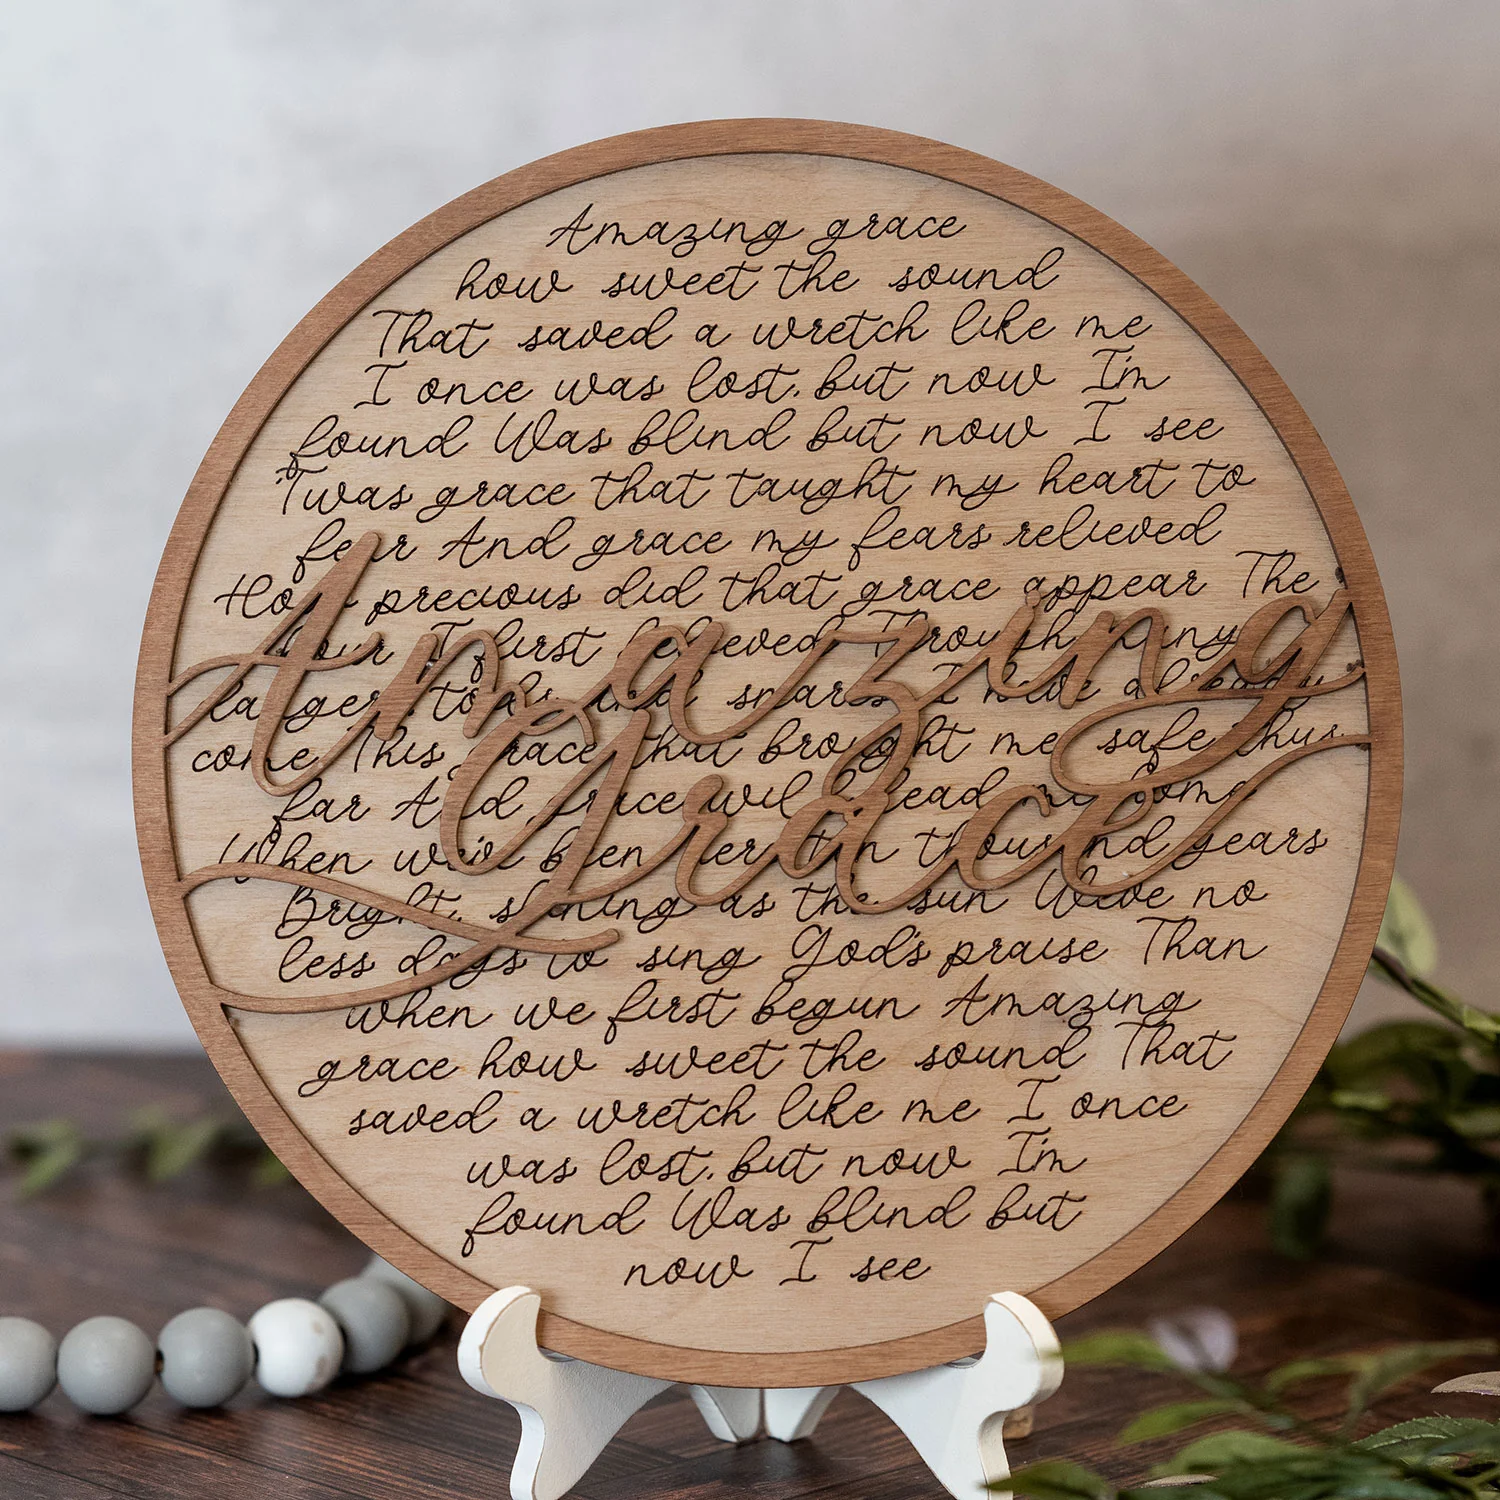 Amazing grace
how sweet the sound
That saved a wretch like me
I once was lost, but now I'm
found Was blind but now I see
'Twas grace that taught my heart to
fear And grace my fears relieved
How precious did that grace appear The
hour I first believed Through many
dangers, toils and snares I have already
come This grace that brought me safe thus
far And grace will lead me home
When we've been here ten thousand years
Bright, shining as the sun We've no
less days to sing God's praise Than
when we first begun Amazing
grace how sweet the sound That
saved a wretch like me I once
was lost, but now I'm
found Was blind but
now I see
Amazing
Grace